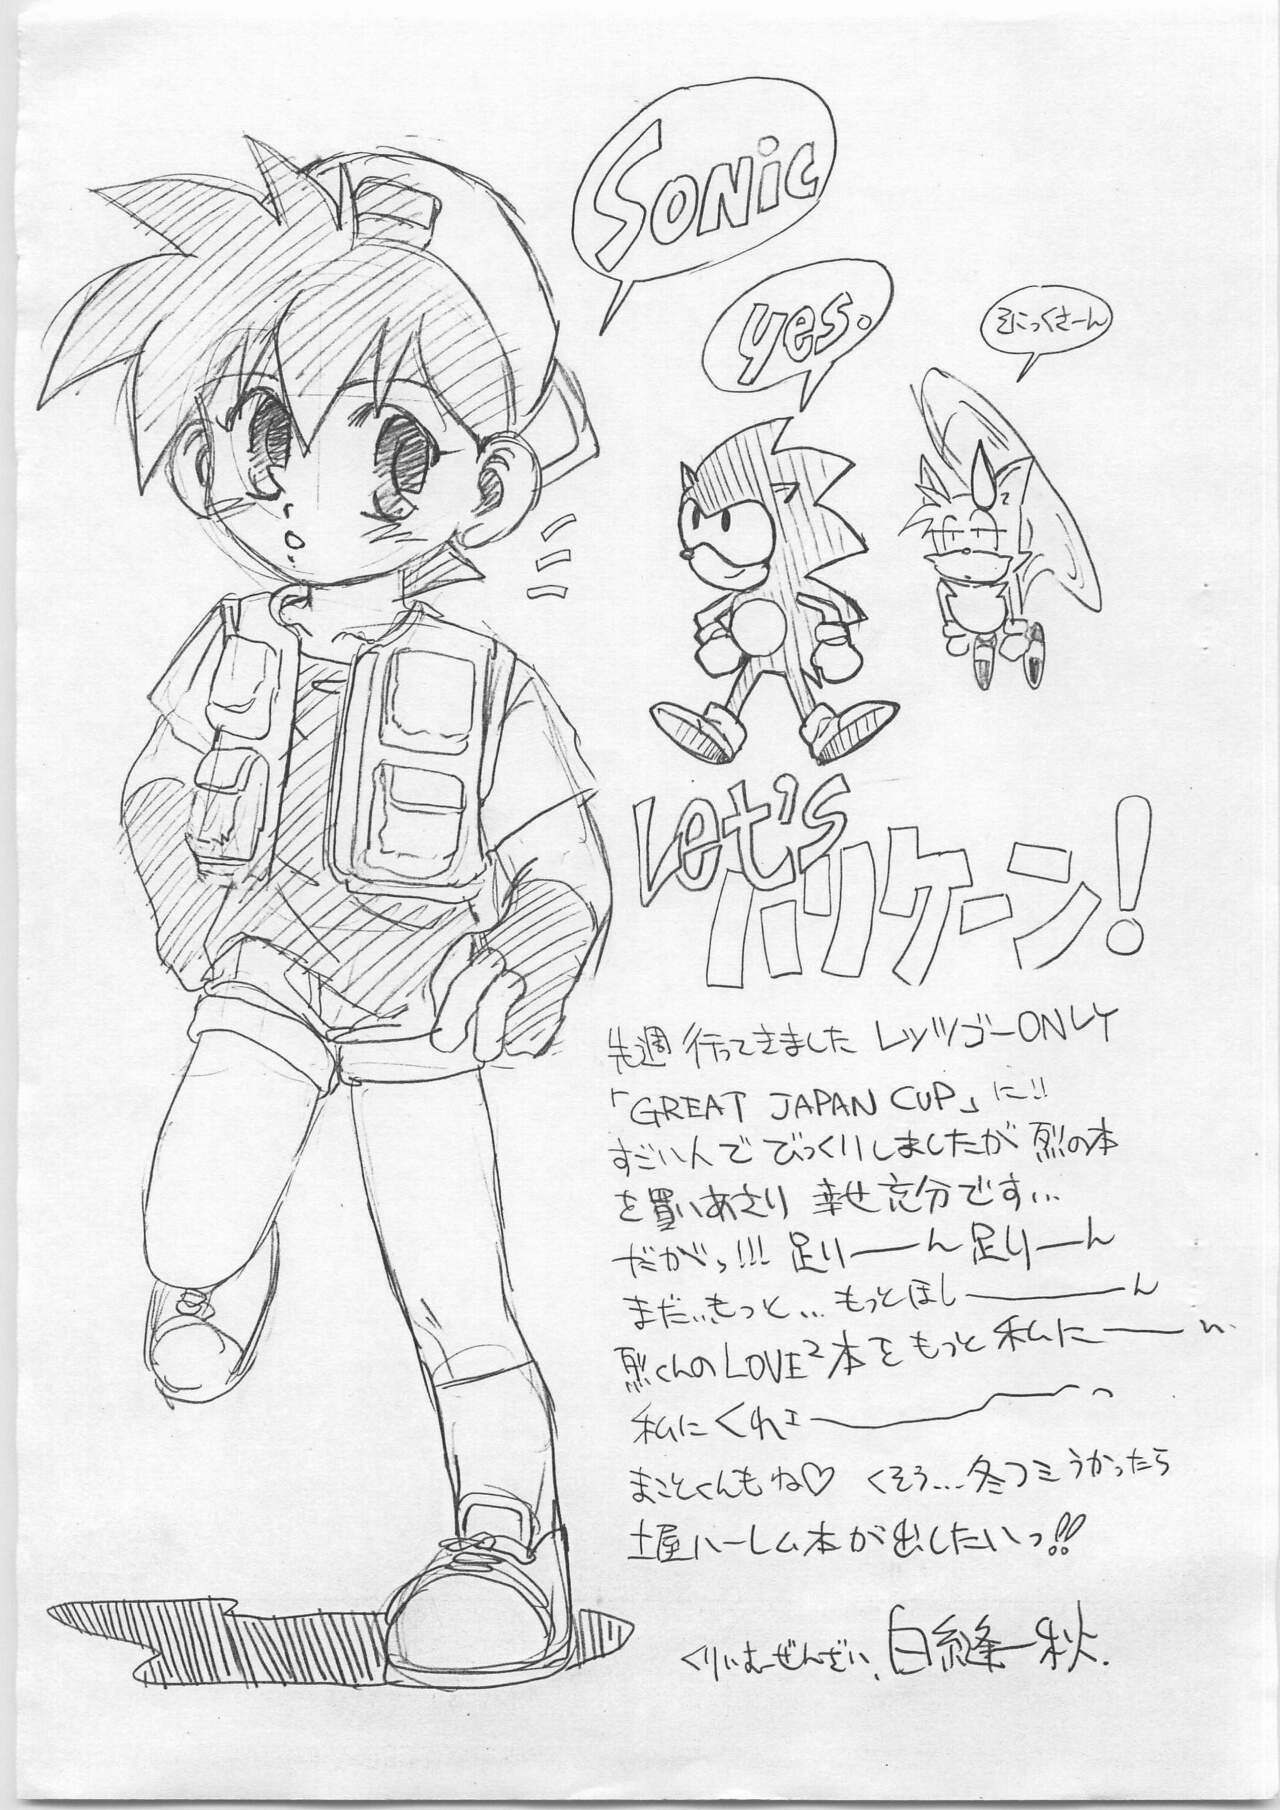 Sonic
yes.
そにっくさーん
Let's
ハリケーン!
先週 行ってきました レッツゴーONLY
「GREAT JAPAN CUP」に!!
すごいんでびっくりしましたが 烈の本
を買いあさり 幸せ充分です...
だがっ!!! 足りーーん足りーん
まだ..もっと... もっとほしーーーーん
烈くんのLOVE²本をもっと 私にーーん
私に くれェーーーーーっ
まことくんもね♡ くそう...冬コミうかったら
土屋ハーレム本が出したいっ!!
くりぃむーぜんざい. 白縫一秋.